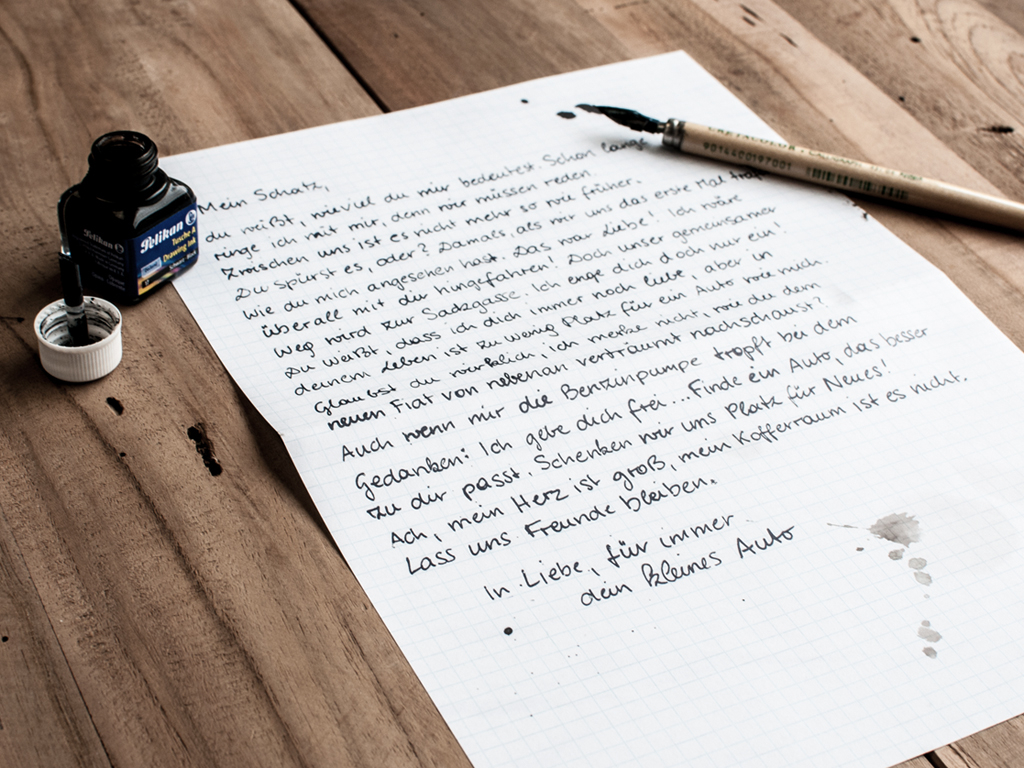 Mein Schatz,
du weißt, wieviel du mir bedeutest. Schon lange
ringe ich mit mir, denn wir müssen reden.
Zwischen uns ist es nicht mehr so wie früher.
Du spürst es, oder? Damals, als wir uns das erste Mal
wie du mich angesehen hast. Das war Liebe! Ich wäre
überall mit dir hingefahren! Doch unser gemeinsamer
Weg wird zur Sackgasse. Ich enge dich doch nur ein!
Du weißt, dass ich dich immer noch liebe, aber in
deinem Leben ist zu wenig Platz für ein Auto wie mich.
Glaubst du wirklich, ich merke nicht, wie du dem
neuen Fiat von nebenan verträumt nachschaust?
Auch wenn mir die Benzinpumpe tropft bei dem
Gedanken: Ich gebe dich frei... Finde ein Auto, das besser
zu dir passt. Schenken wir uns Platz für Neues!
Ach, mein Herz ist groß, mein Kofferraum ist es nicht.
Lass uns Freunde bleiben.
In Liebe, für immer
dein kleines Auto
Pelikan
Tusche A
Drawing Ink
CRETACOLOR
90144C0197001